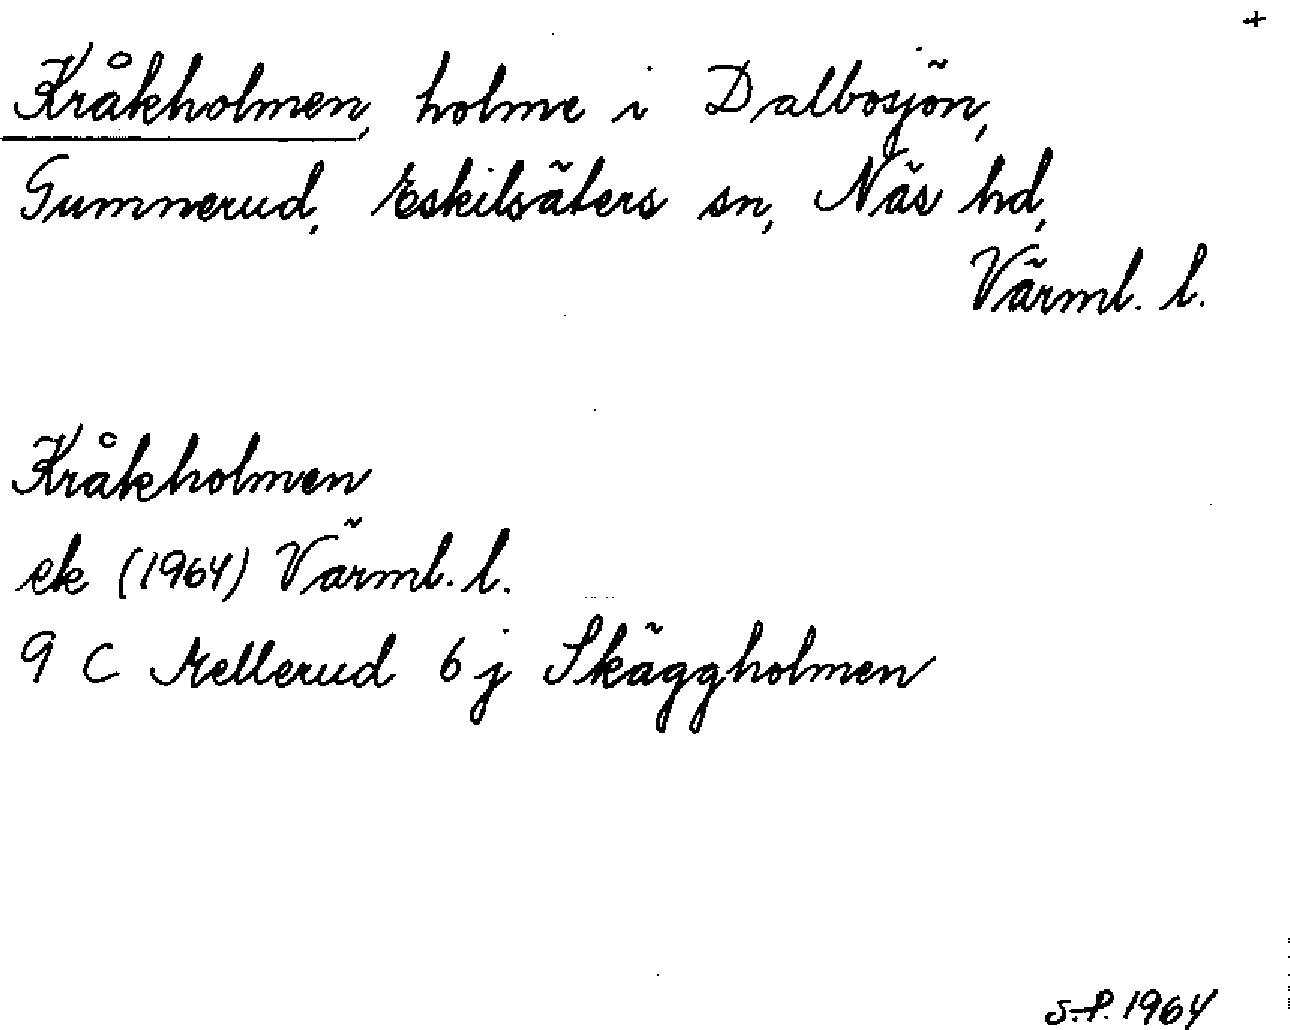 +
Kråkholmen, holme i Dalbosjön,
Gumnerud, Eskilsäters sn, Näs hd,
Värml. l.
Kråkholmen
ek (1964) Värml. l.
9 C Mellerud 6 j Skäggholmen
S.-P. 1964